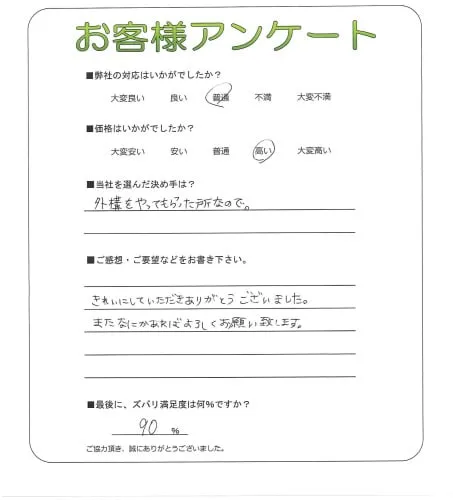 お客様アンケート
■弊社の対応はいかがでしたか？
大変良い 良い 普通 不満 大変不満
■価格はいかがでしたか？
大変安い 安い 普通 高い 大変高い
■当社を選んだ決め手は？
外構をやってもらった所なので。
■ご感想・ご要望などをお書き下さい。
きれいにしていただきありがとうございました。
またなにかあればよろしくお願い致します。
■最後に、ズバリ満足度は何％ですか？
90 ％
ご協力頂き、誠にありがとうございました。